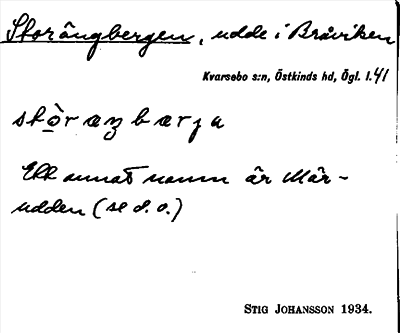 Storängbergen, udde i Bråviken
Kvarsebo s:n, Östkinds hd, Ögl. l. 41
stòræŋbærja
Ett annat namn är Mär-
udden (se d. o.)
STIG JOHANSSON 1934.